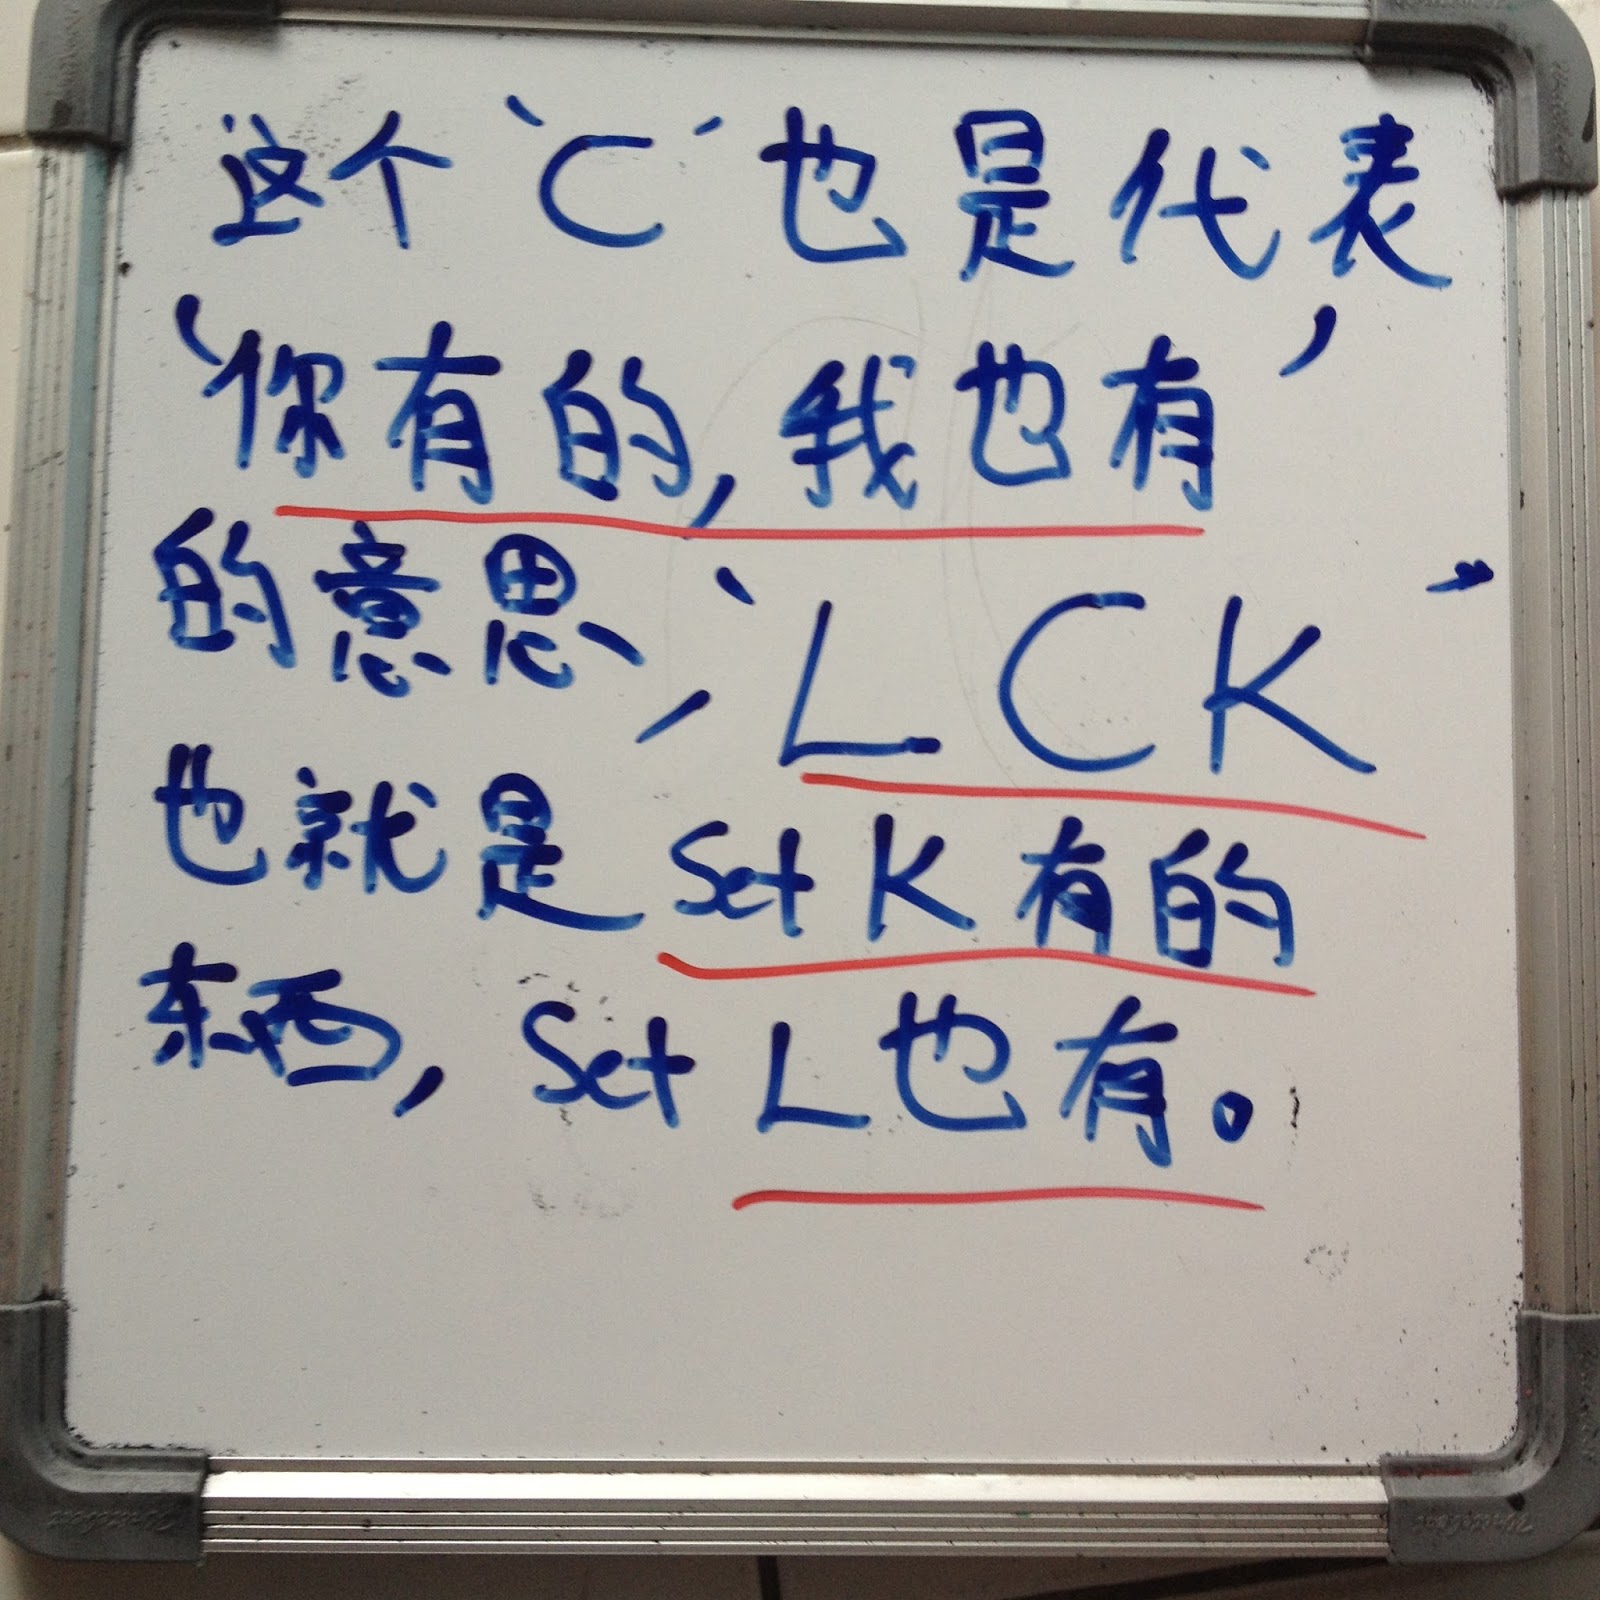 这个‘C’也是代表
‘你有的,我也有’
的意思,‘LCK’
也就是Set K有的
东西,Set L也有。